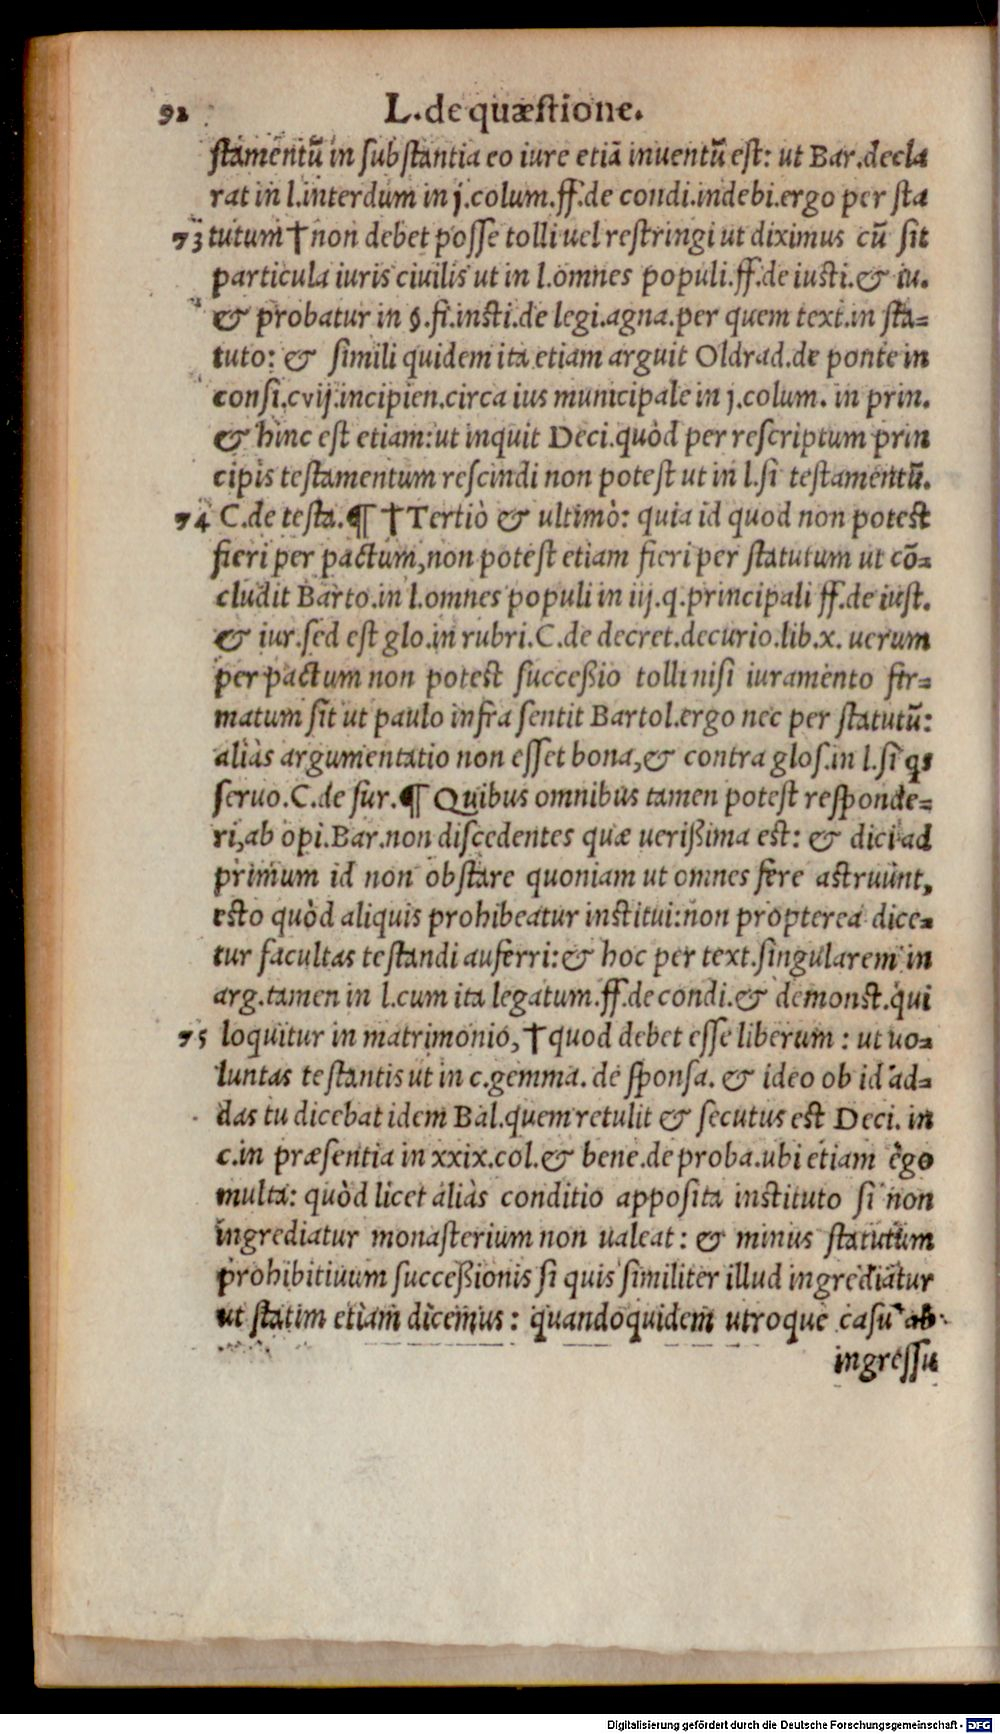 92 L. de quæstione.
stamentũ in substantia eo iure etiã inuentũ est: ut Bar.decla
rat in l.interdum in j.colum.ff.de condi.indebi.ergo per sta
73 tutum † non debet posse tolli uel restringi ut diximus cũ sit
particula iuris ciuilis ut in l.omnes populi.ff.de iusti.& iu.
& probatur in §.fi.insti.de legi.agna.per quem text.in sta-
tuto: & simili quidem ita etiam arguit Oldrad.de ponte in
consi.cvij.incipien.circa ius municipale in j.colum. in prin.
& hinc est etiam: ut inquit Deci.quòd per rescriptum prin
cipis testamentum rescindi non potest ut in l.si testamentũ.
74 C.de testa.¶ † Tertiò & ultimò: quia id quod non potest
fieri per pactum, non potest etiam fieri per statutum ut cō-
cludit Barto.in l.omnes populi in iij.q.principali ff.de iust.
& iur.sed est glo.in rubri.C.de decret.decurio.lib.x. uerum
per pactum non potest succeßio tolli nisi iuramento fir-
matum sit ut paulo infra sentit Bartol.ergo nec per statutũ:
aliàs argumentatio non esset bona, & contra glos.in l.si qs
seruo.C.de fur.¶ Quibus omnibus tamen potest responde-
ri, ab opi.Bar.non discedentes quæ uerißima est: & dici ad
primum id non obstare quoniam ut omnes fere astruunt,
esto quòd aliquis prohibeatur institui: non propterea dice-
tur facultas testandi auferri: & hoc per text.singularem in
arg.tamen in l.cum ita legatum.ff.de condi.& demonst.qui
75 loquitur in matrimonio, † quod debet esse liberum : ut uo-
luntas testantis ut in c.gemma. de sponsa. & ideo ob id ad-
das tu dicebat idem Bal.quem retulit & secutus est Deci. in
c.in præsentia in xxix.col.& bene.de proba.ubi etiam ego
multa: quòd licet aliàs conditio apposita instituto si non
ingrediatur monasterium non ualeat : & minus statutum
prohibitiuum succeßionis si quis similiter illud ingrediatur
ut statim etiam dicemus : quandoquidem utroque casu ab
ingressu
Digitalisierung gefördert durch die Deutsche Forschungsgemeinschaft - DFG